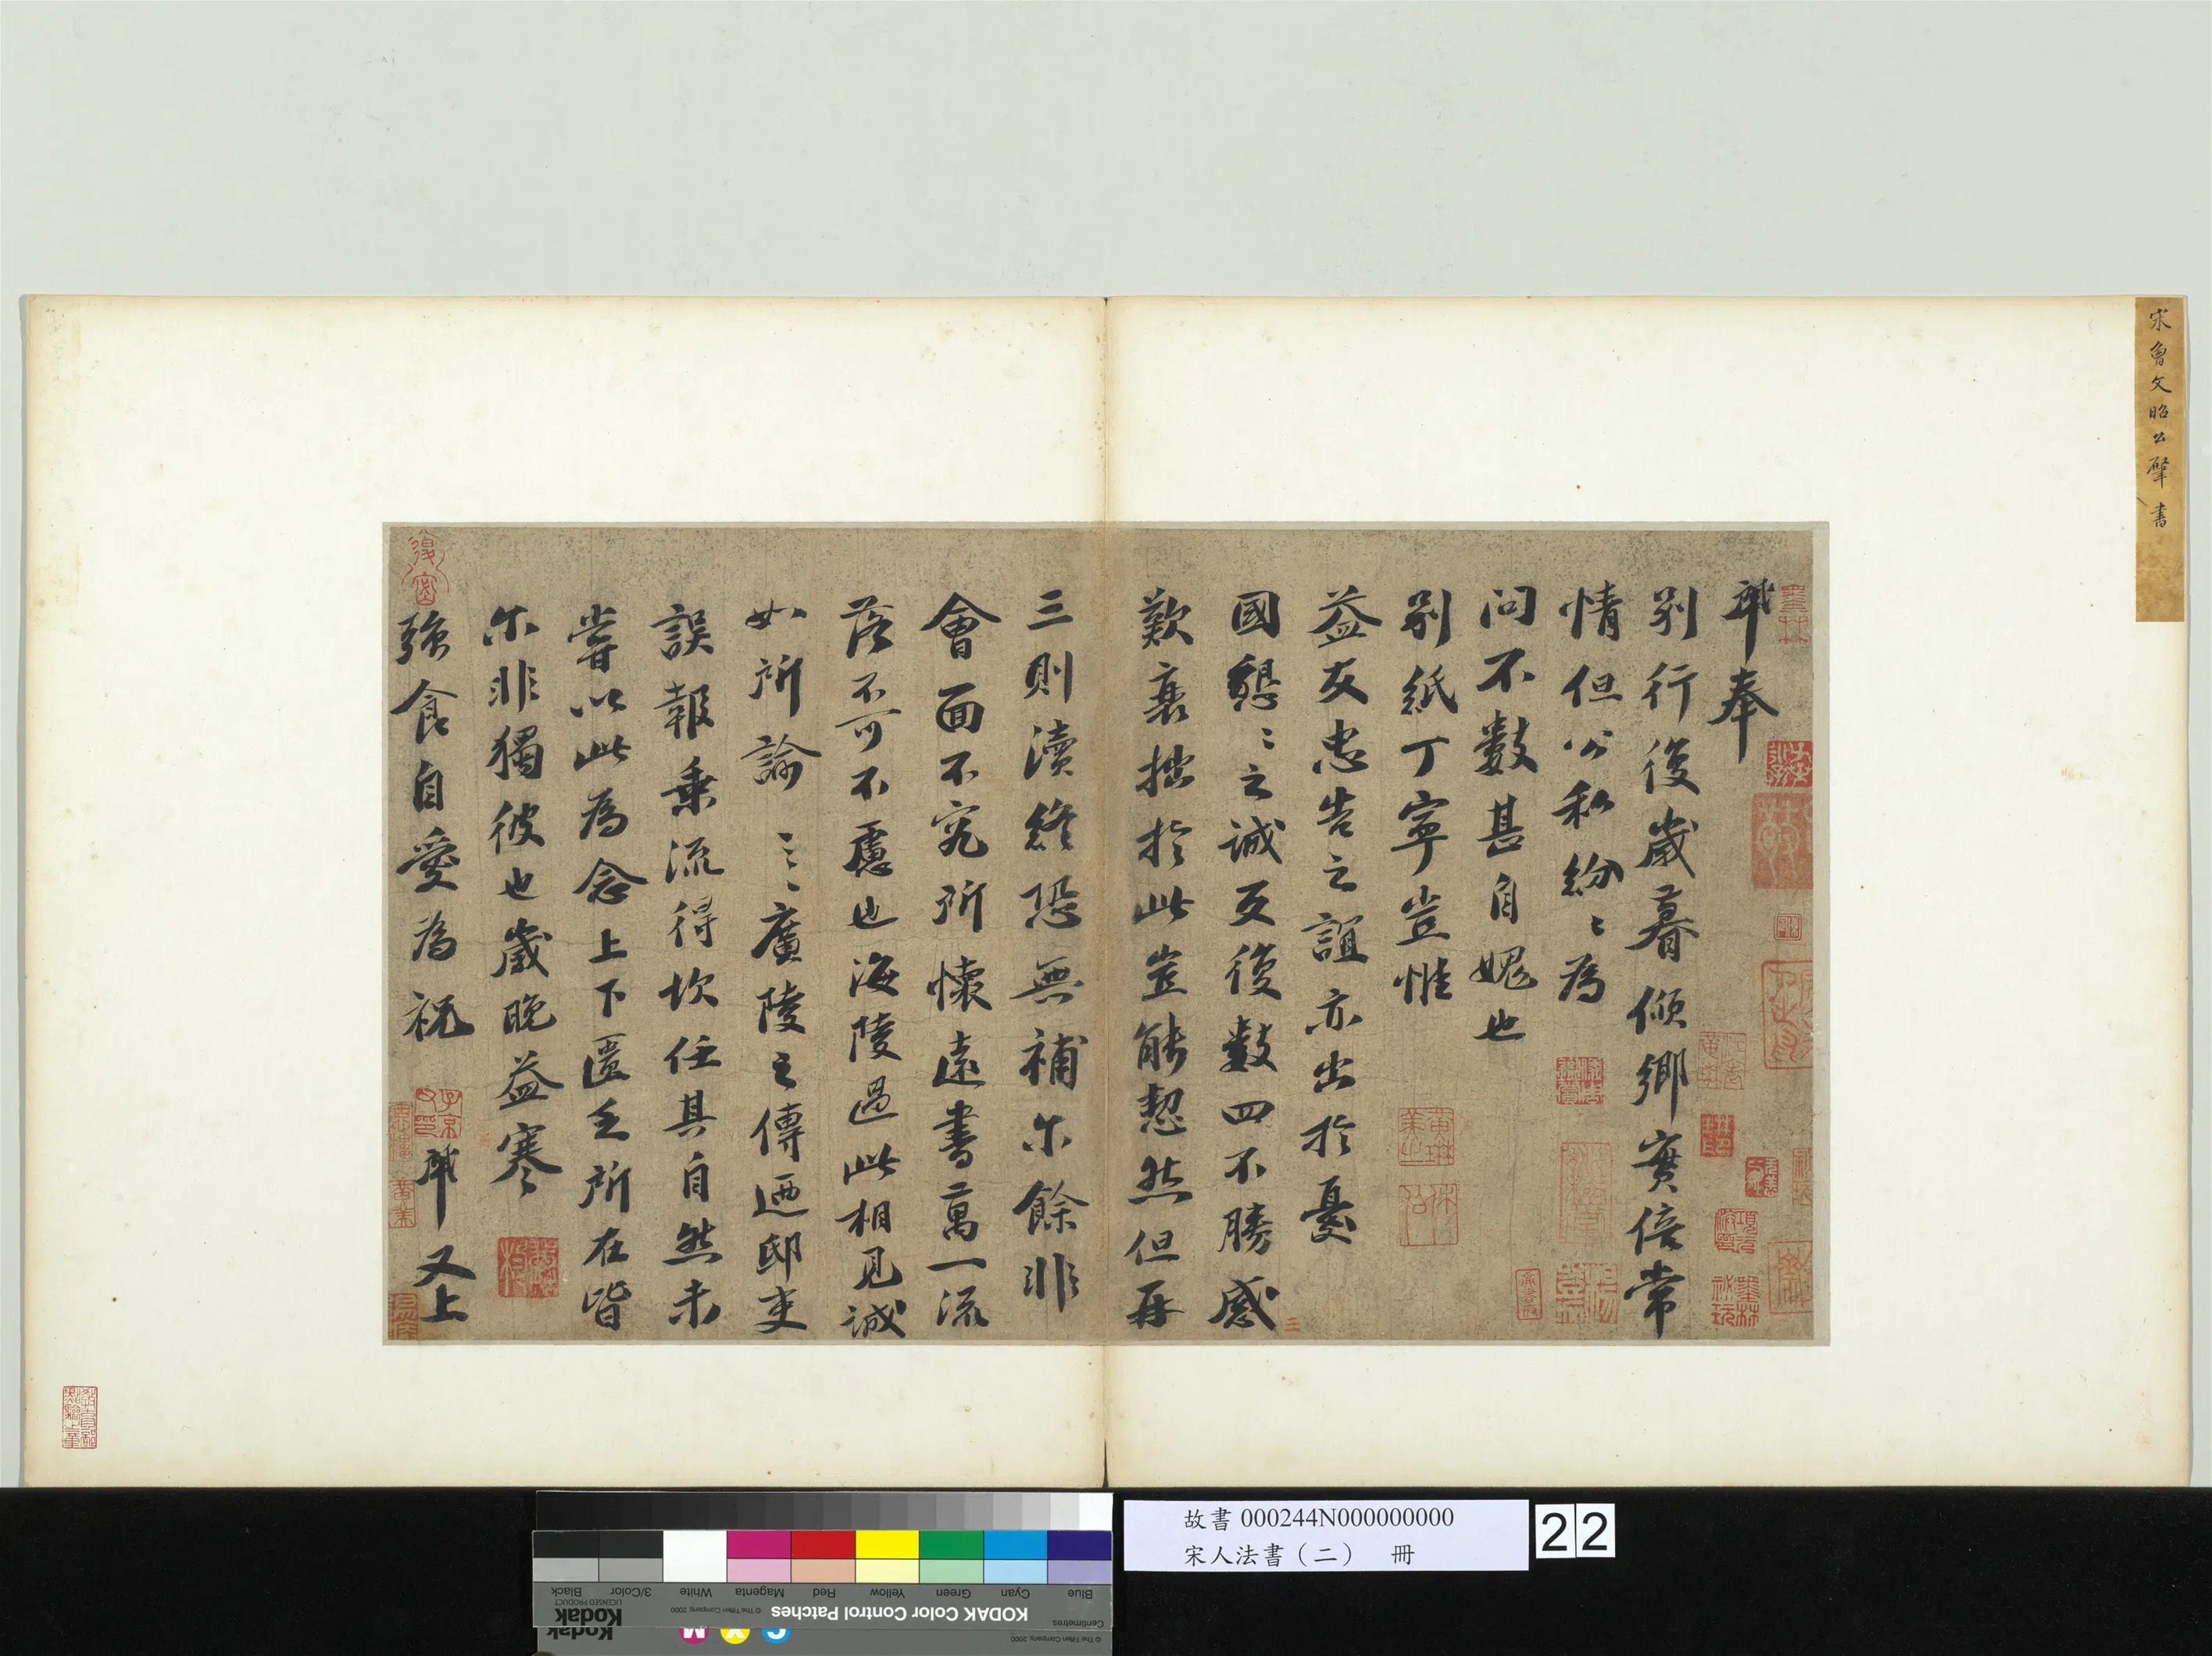 宋曾文昭公肇書
肇奉
別行後歲暮傾鄉實倍常
情但公私紛〻為
問不數甚自媿也
別紙丁寧豈惟
益友忠告之誼亦出於憂
國懇〻之誠反復數四不勝感
歎衰拙於此豈能恝然但再
三則瀆終恐無補尔餘非
會面不究所懷遠書萬一流
落不可不慮也海陵過此相見誠
如所諭〻〻廣陵之傳迺邸吏
誤報乗流得坎任其自然未
嘗以此為念上下匱乏所在皆
尔非獨彼也歲晚益寒
強食自愛為祝
肇又上
三
墨林祕玩
故書 000244N000000000
宋人法書（二） 冊
22
Centimetres
Blue Cyan Green Yellow Red Magenta White 3/Color Black
KODAK Color Control Patches
© The Tiffen Company, 2000
Kodak
LICENSED PRODUCT
© The Tiffen Company, 2000
C Y M
Kodak